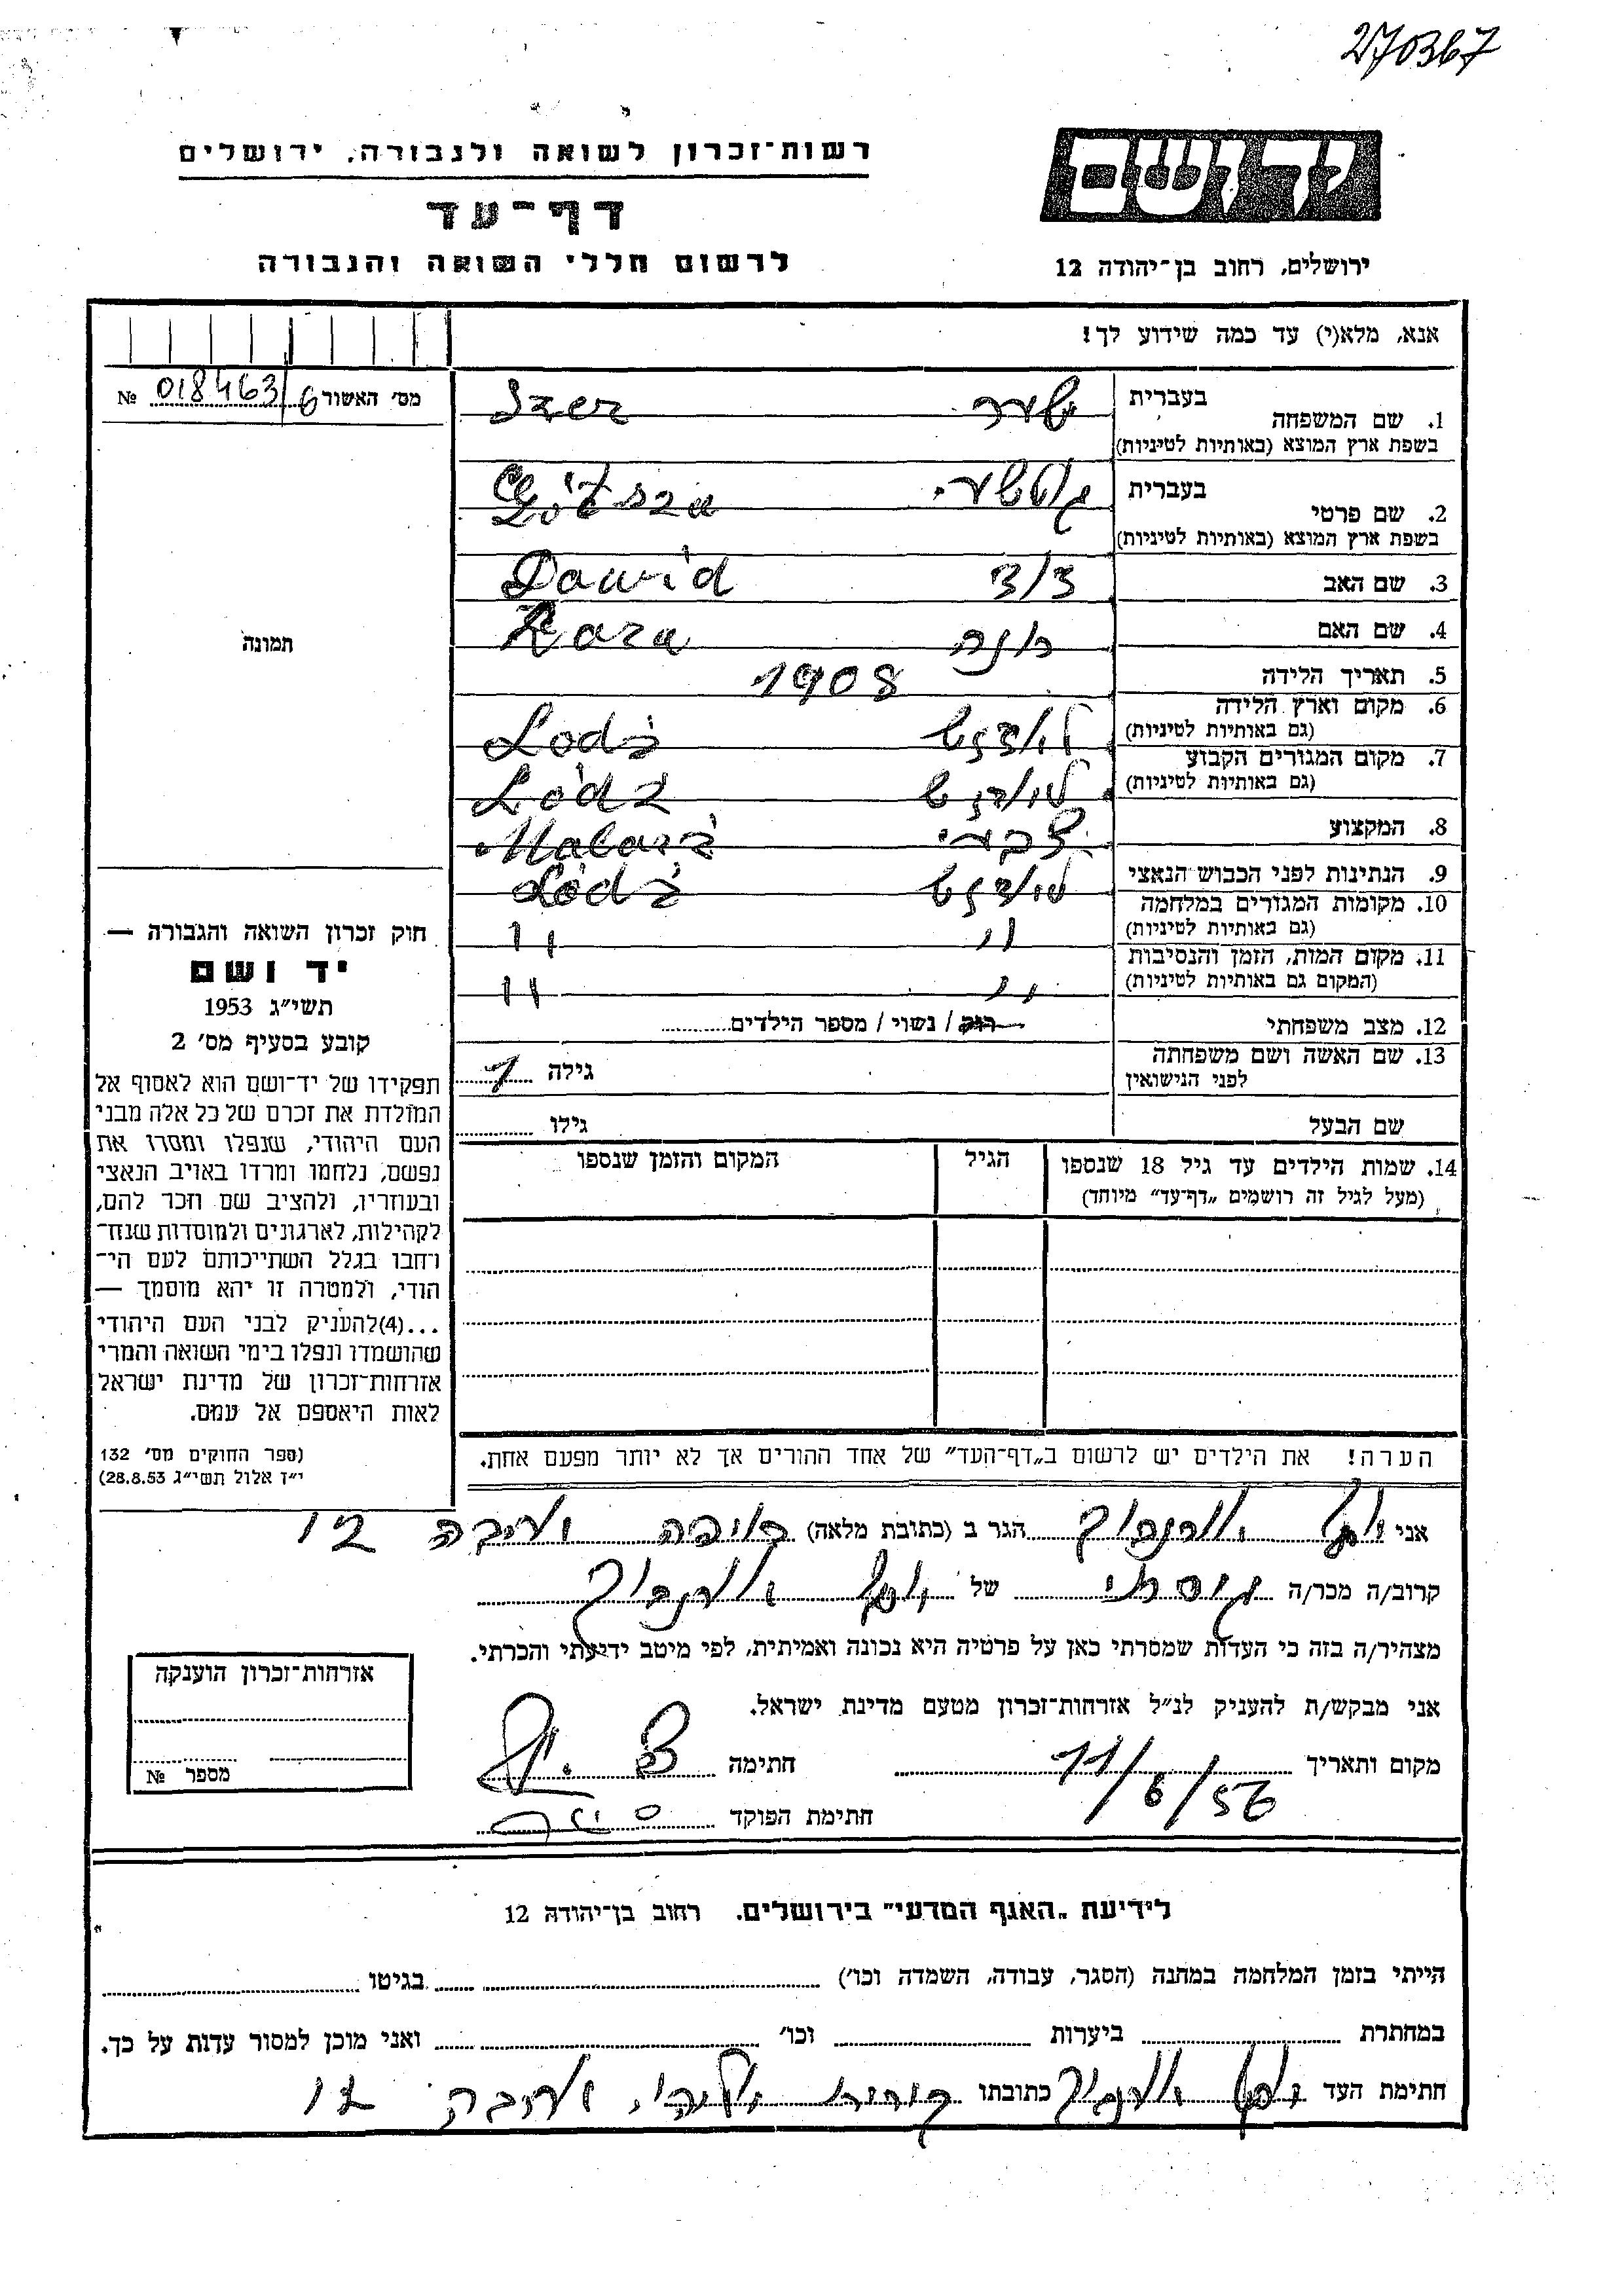 270367
יד ושם
רשות־זכרון לשואה ולגבורה, ירושלים
דף־עד
לרשום חללי השואה והגבורה
ירושלים, רחוב בן־יהודה 12
אנא, מלא(י) עד כמה שידוע לך!
מס׳ האשור 6/018463 №
תמונה
חוק זכרון השואה והגבורה —
יד ושם
תשי״ג 1953
קובע בסעיף מס׳ 2
תפקידו של יד־ושם הוא לאסוף אל
המולדת את זכרם של כל אלה מבני
העם היהודי, שנפלו ומסרו את
נפשם, נלחמו ומרדו באויב הנאצי
ובעוזריו, ולהציב שם וזכר להם,
לקהילות, לארגונים ולמוסדות שנח־
רחבו בגלל השתייכותם לעם הי־
הודי, ולמטרה זו יהא מוסמך —
...(4)להעניק לבני העם היהודי
שהושמדו ונפלו בימי השואה והמרי
אזרחות־זכרון של מדינת ישראל
לאות היאספם אל עמם.
(ספר החוקים מס׳ 132
י״ז אלול תשי״ג 28.8.53)
בעברית
1. שם המשפחה שער Szer
בשפת ארץ המוצא (באותיות לטיניות)
בעברית
2. שם פרטי
בשפת ארץ המוצא (באותיות לטיניות)
3. שם האב דוד Dawid
4. שם האם
5. תאריך הלידה 1908
6. מקום וארץ הלידה לודזש Lodż
(גם באותיות לטיניות)
7. מקום המגורים הקבוע לודזש Lódż
(גם באותיות לטיניות)
8. המקצוע צבעי Malarż
9. הנתינות לפני הכבוש הנאצי לודזש Lódż
10. מקומות המגורים במלחמה 〃 〃
(גם באותיות לטיניות)
11. מקום המות, הזמן והנסיבות 〃 〃
(המקום גם באותיות לטיניות)
12. מצב משפחתי רוק / נשוי / מספר הילדים
13. שם האשה ושם משפחתה
לפני הנישואין גילה
שם הבעל גילו
14. שמות הילדים עד גיל 18 שנספו הגיל המקום והזמן שנספו
(מעל לגיל זה רושמים „דף־עד״ מיוחד)
הערה! את הילדים יש לרשום ב„דף־העד״ של אחד ההורים אך לא יותר מפעם אחת.
אני הגר ב (כתובת מלאה) 12
קרוב/ה מכר/ה של
מצהיר/ה בזה כי העדות שמסרתי כאן על פרטיה היא נכונה ואמיתית, לפי מיטב ידיעתי והכרתי.
אני מבקש/ת להעניק לנ״ל אזרחות־זכרון מטעם מדינת ישראל.
מקום ותאריך 11/6/56 חתימה
חתימת הפוקד
אזרחות־זכרון הוענקה
מספר №
לידיעת „האגף המדעי״ בירושלים. רחוב בן־יהודה 12
הייתי בזמן המלחמה במחנה (הסגר, עבודה, השמדה וכו׳) בגיטו
במחתרת ביערות וכו׳ ואני מוכן למסור עדות על כך.
חתימת העד כתובתו 12